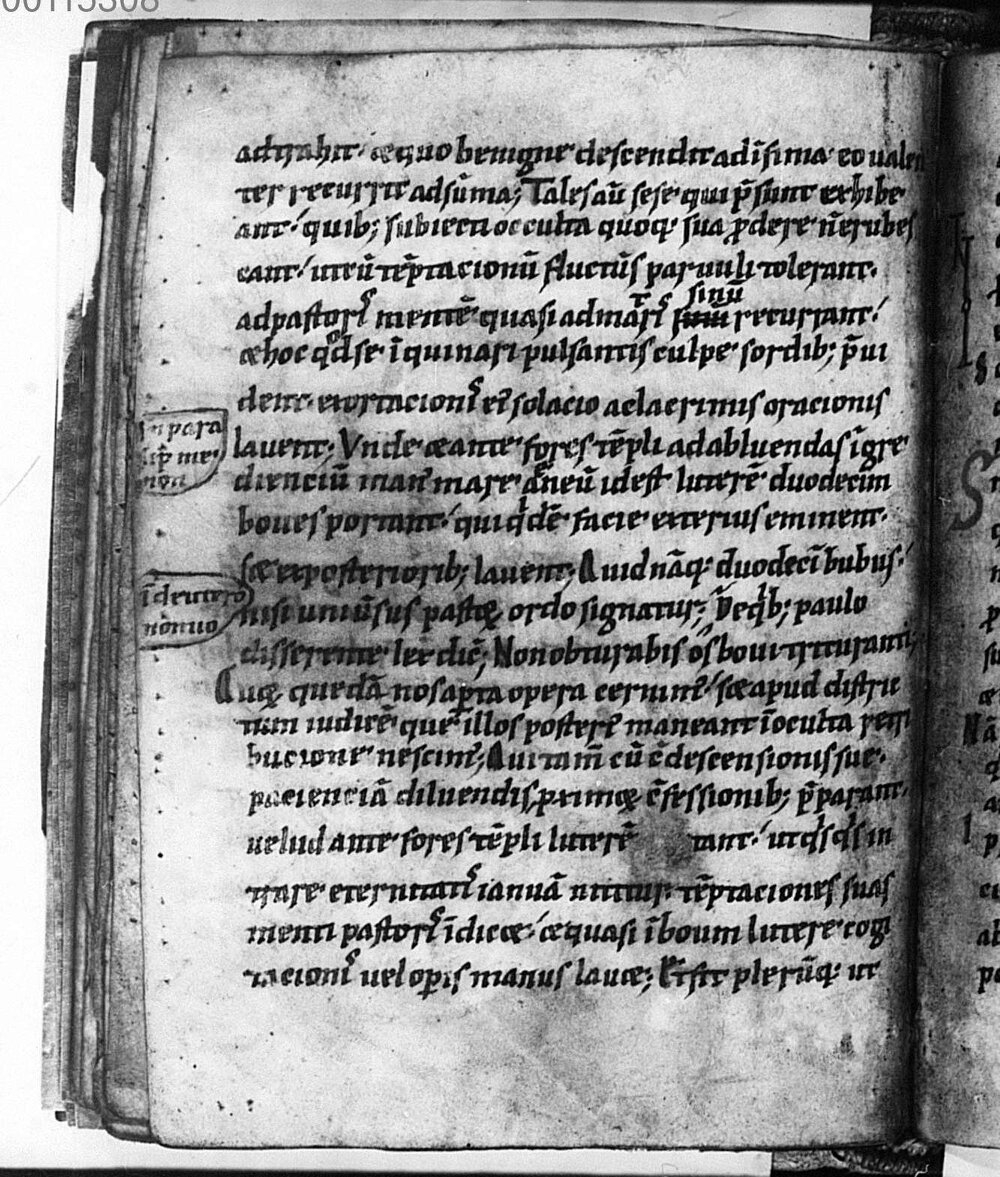 00115308
adtrahit· & quo benigne descendit ad īfima· eo ualen
ter recurrit ad sūma; Tales aū sese qui p̄sunt exhibe
ant· quib; subiecti occulta quoq; sua ꝓdere n̄ erubes
cant· ut cū tēptacionū fluctus paruuli tolerant·
ad pastoris mentē quasi ad matris sinū recurrant·
& hoc qd se īquinari pulsantis culpe sordib; p̄ui
dent· exortacionis ei solacio ac lacrimis oracionis
lauent; Vnde & ante fores tēpli ad abluendas īgre
dienciū man' mare aneū id est luterē duodecim
boues portant· qui qdē facie exterius eminent·
sed ex posteriorib; lauent; Quid nāq; duodecī bubus·
nisi uniūsus pastoꝝ ordo signatur; De qb; paulo
disserente lex dic̄; Non obturabis os boui trituranti;
Quoꝝ quedā nos aꝑta opera cernim'· sed apud distric
tum iudicē que illos posteri' maneant ī oculta retri
bucione nescim'; Qui tam̄ cū c̄descensionis sue·
pacienciā diluendis proximoꝝ c̄fessionib; p̄parant·
uelud ante fores tēpli luterē tant· ut qsqs in
trare eternitatis ianuā nititur· tēptaciones suas
menti pastoris īdicet· & quasi ī boum lutere cogi
tacionis uel oꝑis manus lauet; Et fit plerūq; ut
In para
lip̄ me·
non
ī deutero
nomio